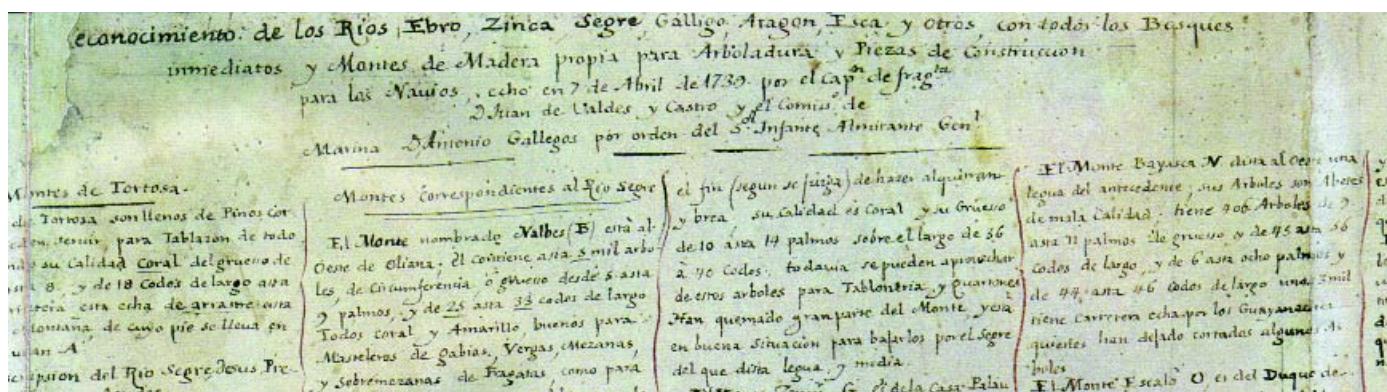 econocimiento de los Rios, Ebro, Zinca, Segre, Galligo, Aragon, Esca, y otros, con todos los Bosques
inmediatos y Montes de Madera propia para Arboladura y Piezas de Construccion
para los Navios, echo en 7 de Abril de 1739. por el Cap.n de frag.ta
D Juan de Valdes y Castro y el Comis.o de
Marina D Antonio Gallegos por orden del S.or Infante Almirante Gen.l
Montes de Tortosa.
de Tortosa son llenos de Pinos cor
servir, para Tablazon de todo
su Calidad Coral del grueso de
8. y de 18 Codos de largo asta
esta echa de arrastre esta
de cuyo pie se lleva en
A.
del Rio Segre, Jesus, Pre
Montes correspondientes al Rio Segre
El Monte nombrado Valbes (B) està al
Oeste de Oliana; èl contiene asta 5 mil arbo
les, de Circumferencia ò grueso desde 5 asta
9 palmos, y de 25 asta 33 codos de largo
Todos Coral y Amarillo, buenos para
Masteleros de gabias, Vergas, Mezanas,
y Sobremezanas de Fragatas como para
el fin (segun se juzga) de hazer alquitran
y brea, su Calidad es Coral y su Grueso
de 10 asta 14 palmos sobre el largo de 36
à 40 Codos: todavia se pueden aprovechar
de estos arboles para Tabloneria, y quartones
Han quemado gran parte del Monte, y està
en buena situacion para bajarlos por el Segre
del que dista legua, y media
de la Casa Palau
El Monte Bayasca N. dista al Oeste una
legua del antecedente; sus Arboles son Abetes
de mala Calidad. tiene 400 Arboles de 9
asta 11 palmos de grueso y de 45 asta 56
Codos de largo, y de 6 asta ocho palmos y
de 44 asta 46 Codos de largo unos 3 mil
tiene Carretera echa por los
quienes han dejado cortados algunos Ar
boles
El Monte Escalò O es del Duque de